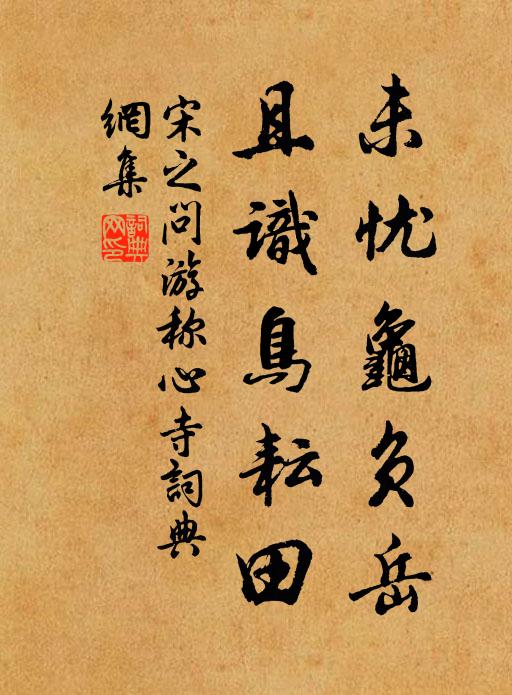 未忧龜负岳
且識鳥耘田
宋之问游称心寺詞典
網集
詞典
网印